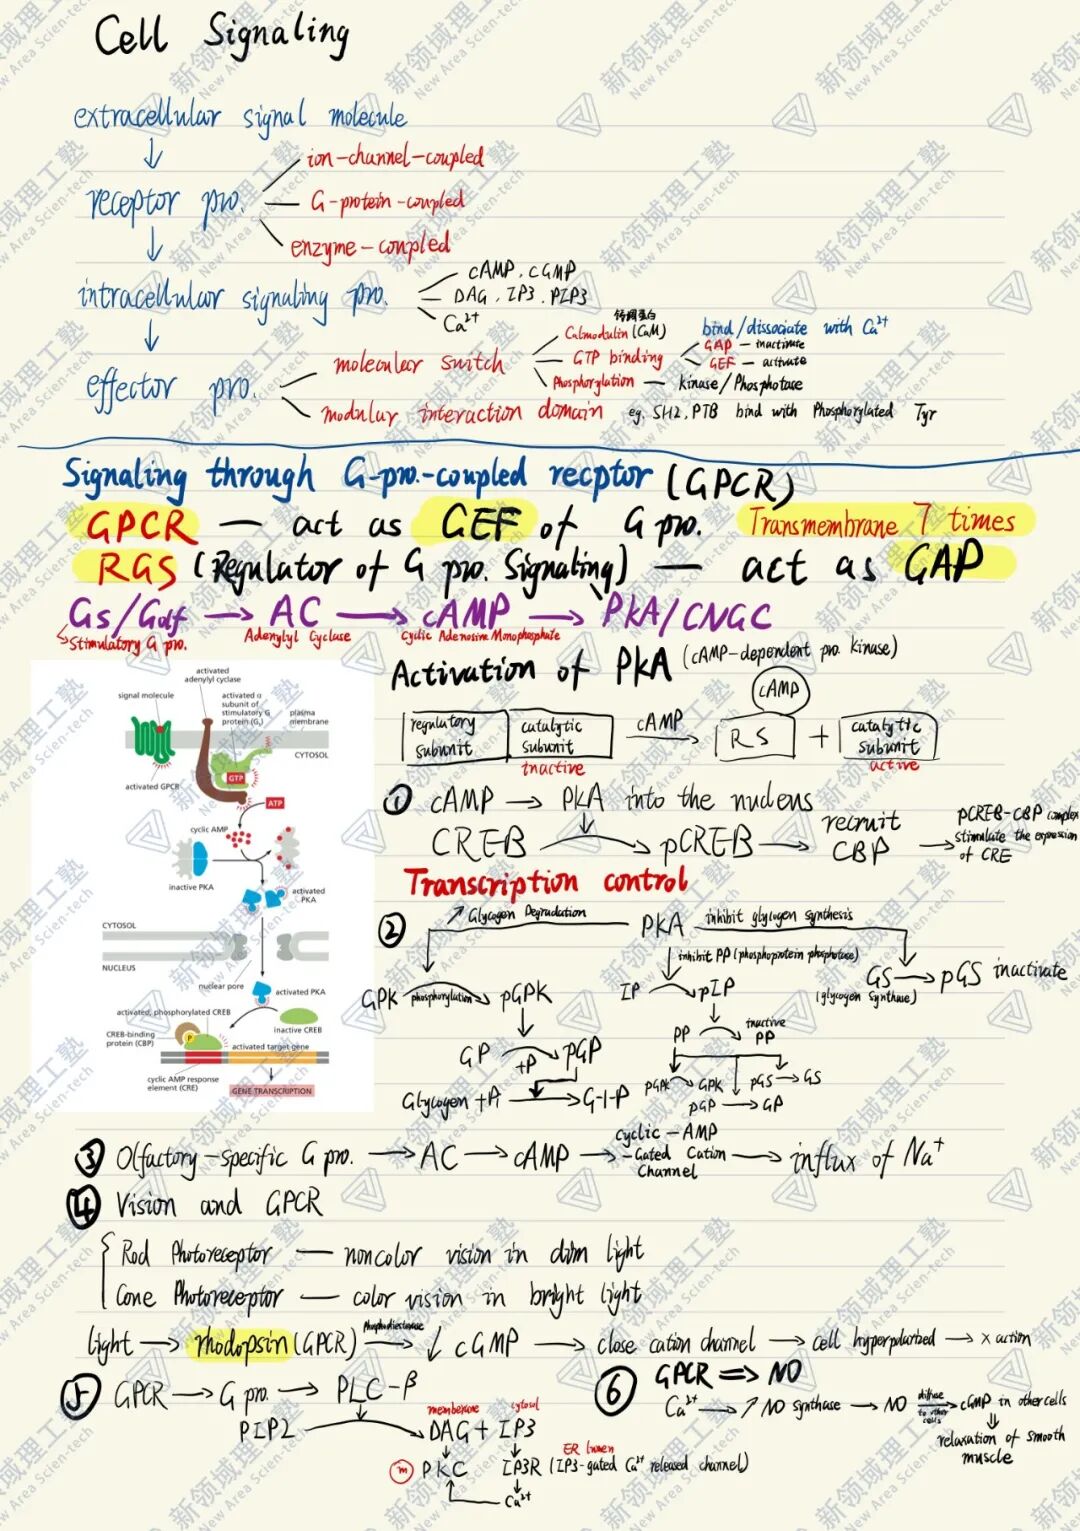 Cell Signaling
extracellular signal molecule
ion-channel-coupled
receptor pro. G-protein-coupled
enzyme-coupled
cAMP, cGMP
intracellular signaling pro. DAG, IP3, PIP3
Ca²⁺
钙调蛋白
Calmodulin (CaM) bind/dissociate with Ca²⁺
molecular switch GTP binding GAP — inactivate
GEF — activate
effector pro. Phosphorylation — kinase/Phosphotase
modular interaction domain eg. SH2, PTB bind with Phosphorylated Tyr
Signaling through G-pro.-coupled recptor (GPCR)
GPCR — act as GEF of G pro. Transmembrane 7 times
RGS (Regulator of G pro. Signaling) — act as GAP
Gs/Golf → AC → cAMP → PKA/CNGC
Stimulatory G pro. Adenylyl Cyclase Cyclic Adenosine Monophosphate
Activation of PKA (cAMP-dependent pro. kinase)
cAMP
regulatory subunit catalytic subunit cAMP → RS + catalytic subunit
inactive active
① cAMP → PKA into the nucleus
CREB → pCREB → recruit CBP → pCREB-CBP complex stimulate the expression of CRE
Transcription control
activated adenylyl cyclase
signal molecule
activated α subunit of stimulatory G protein (Gs)
plasma membrane
CYTOSOL
activated GPCR
GTP
ATP
cyclic AMP
inactive PKA
activated PKA
CYTOSOL
NUCLEUS
nuclear pore
activated PKA
activated, phosphorylated CREB
inactive CREB
CREB-binding protein (CBP)
P
activated target gene
cyclic AMP response element (CRE)
GENE TRANSCRIPTION
② ↗ Glycogen Degradation PKA inhibit glycogen synthesis
inhibit PP (phosphoprotein phosphotase)
GPK phosphorylation → pGPK IP → pIP GS → pGS inactivate
(glycogen synthase)
GP +P → pGP PP → inactive PP
Glycogen + Pi → G-1-P pGPK → GPK pGS → GS
pGP → GP
③ Olfactory-specific G pro. → AC → cAMP → cyclic-AMP-Gated Cation Channel → influx of Na⁺
④ Vision and GPCR
Rod Photoreceptor — noncolor vision in dim light
Cone Photoreceptor — color vision in bright light
light → rhodopsin (GPCR) Phosphodiesterase → ↓ cGMP → close cation channel → cell hyperpolarized → × action
⑤ GPCR → G pro. → PLC-β
membrane cytosol
PIP2 → DAG + IP3
ER lumen
m PKC IP3R (IP3-gated Ca²⁺ released channel)
Ca²⁺
⑥ GPCR ⇒ NO
Ca²⁺ → ↗ NO synthase → NO diffuse to other cells → cGMP in other cells
relaxation of smooth muscle
新领域理工塾
New Area Scien-tech